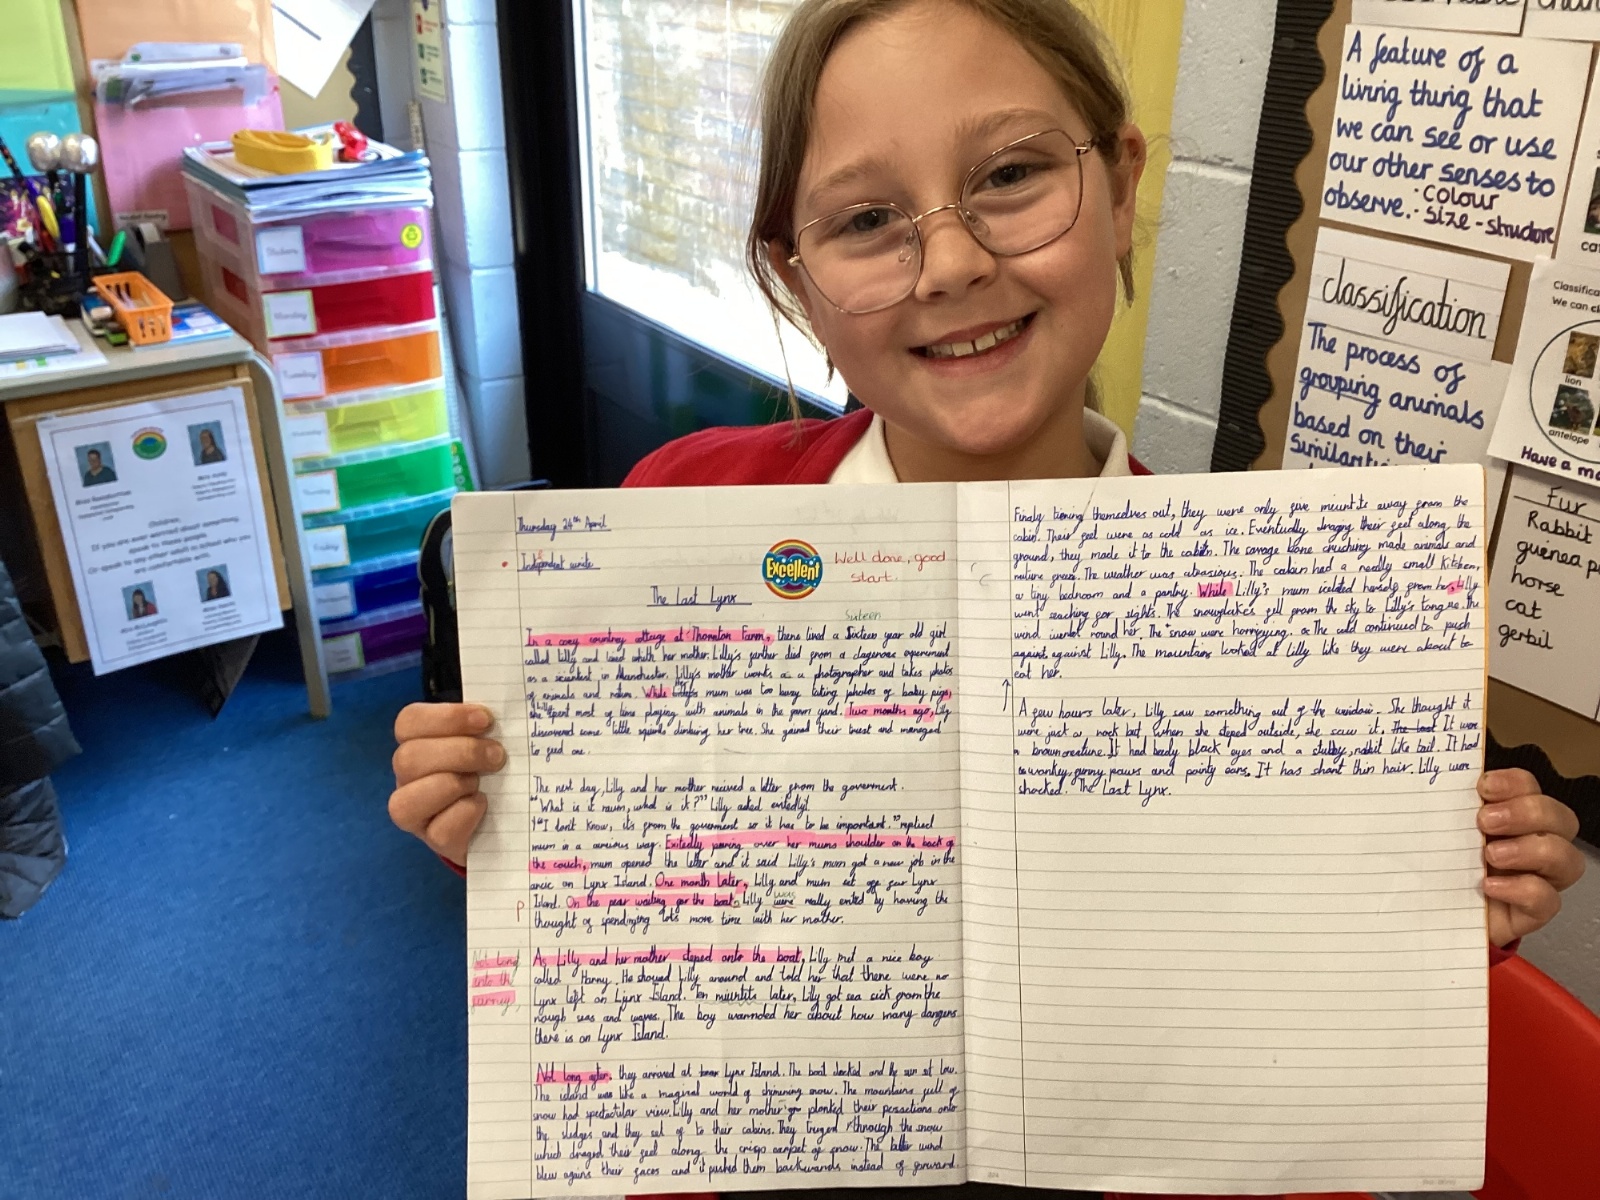 Thursday 24th April
Independent write
Excellent
Well done, good
start.
The Last Lynx
Sixteen
In a cosy country cottage at Thornton Farm, there lived a Sixteen year old girl
called Lilly and lived whith her mother. Lilly's farther did from a dagerose experiment
as a scientist in Manchester. Lilly's mother works as a photographer and takes photos
of animals and nature. While Lilly's mum was too busy taking photos of baby pigs,
she spent most of time playing with animals in the farm yard. Two months ago, Lilly
discovered some little squirels climbing her tree. She gained their trust and managed
to feed one.
The next day, Lilly and her mother recived a letter from the goverment.
"What is it mum, what is it?" Lilly asked exitedly!
"I don't know, it's from the goverment so it has to be important." replied
mum in a way. Exitedly peering over her mums shoulder on the back of
the couch, mum opened the letter and it said Lilly's mom got a new job in the
arcic on Lynx Island. One month later, Lilly and mum set off for Lynx
Island. On the pear waiting for the boat, Lilly were really exited by having the
was
P
thought of spendging lots more time with her mother.
As Lilly and her mother steped onto the boat, Lilly met a nice boy
called Harry. He showed Lilly around and told her that there were no
Not long
onto the
jarney,
Lynx left on Lynx Island. Ten miuntits later, Lilly got sea sick from the
rough seas and waves. The boy her about how many dangers
there is on Lynx Island.
Not long after, they arrived at Lynx Island. The boat docked and the sun set low.
The island was like a magical world of shimering snow. The mountains full of
snow had spectactular view. Lilly and her mother planted their onto
the sledges and they set of to their cabins. They through the snow
which draged their feet along the crisp carpet of snow. The bitter wind
blew agains their faces and it pushed them backwards instead of forward.
Finaly tiering themselves out, they were only five miuntits away from the
cabin. Their feet were as cold as ice. Eventually draging their feet along the
ground, they made it to the cabin. The savage bone crushing made animals and
nature The weather was The cabin had a really small kitchen,
a tiny bedroom and a pantry. While Lilly's mum herself from her, Lilly
went seaching for sights. The snowflakes fell from the sky to Lilly's tongue. The
wind round her. The snow were horrifying. The cold continued to push
against against Lilly. The mountains looked at Lilly like they were about to
eat her.
A few hours later, Lilly saw something out of the window. She thought it
were just a rock but, when she steped outside, she saw it. It were
a brown creature. It had beady black eyes and a stubby, rabbit like tail. It had
funny paws and pointy ears. It has short thin hair. Lilly were
shocked. The Last Lynx.
A feature of a
living thing that
we can see or use
our other senses to
observe. - colour
- size - structure
classification
The process of
grouping animals
based on their
We can
lion
antelope
Fur
Rabbit
guinea
horse
cat
gerbil
Stickers
Monday
Tuesday
Thursday
Friday
Children,
If you are ever worried about something,
speak to these people.
Or speak to any other adult in school who you
are comfortable with.